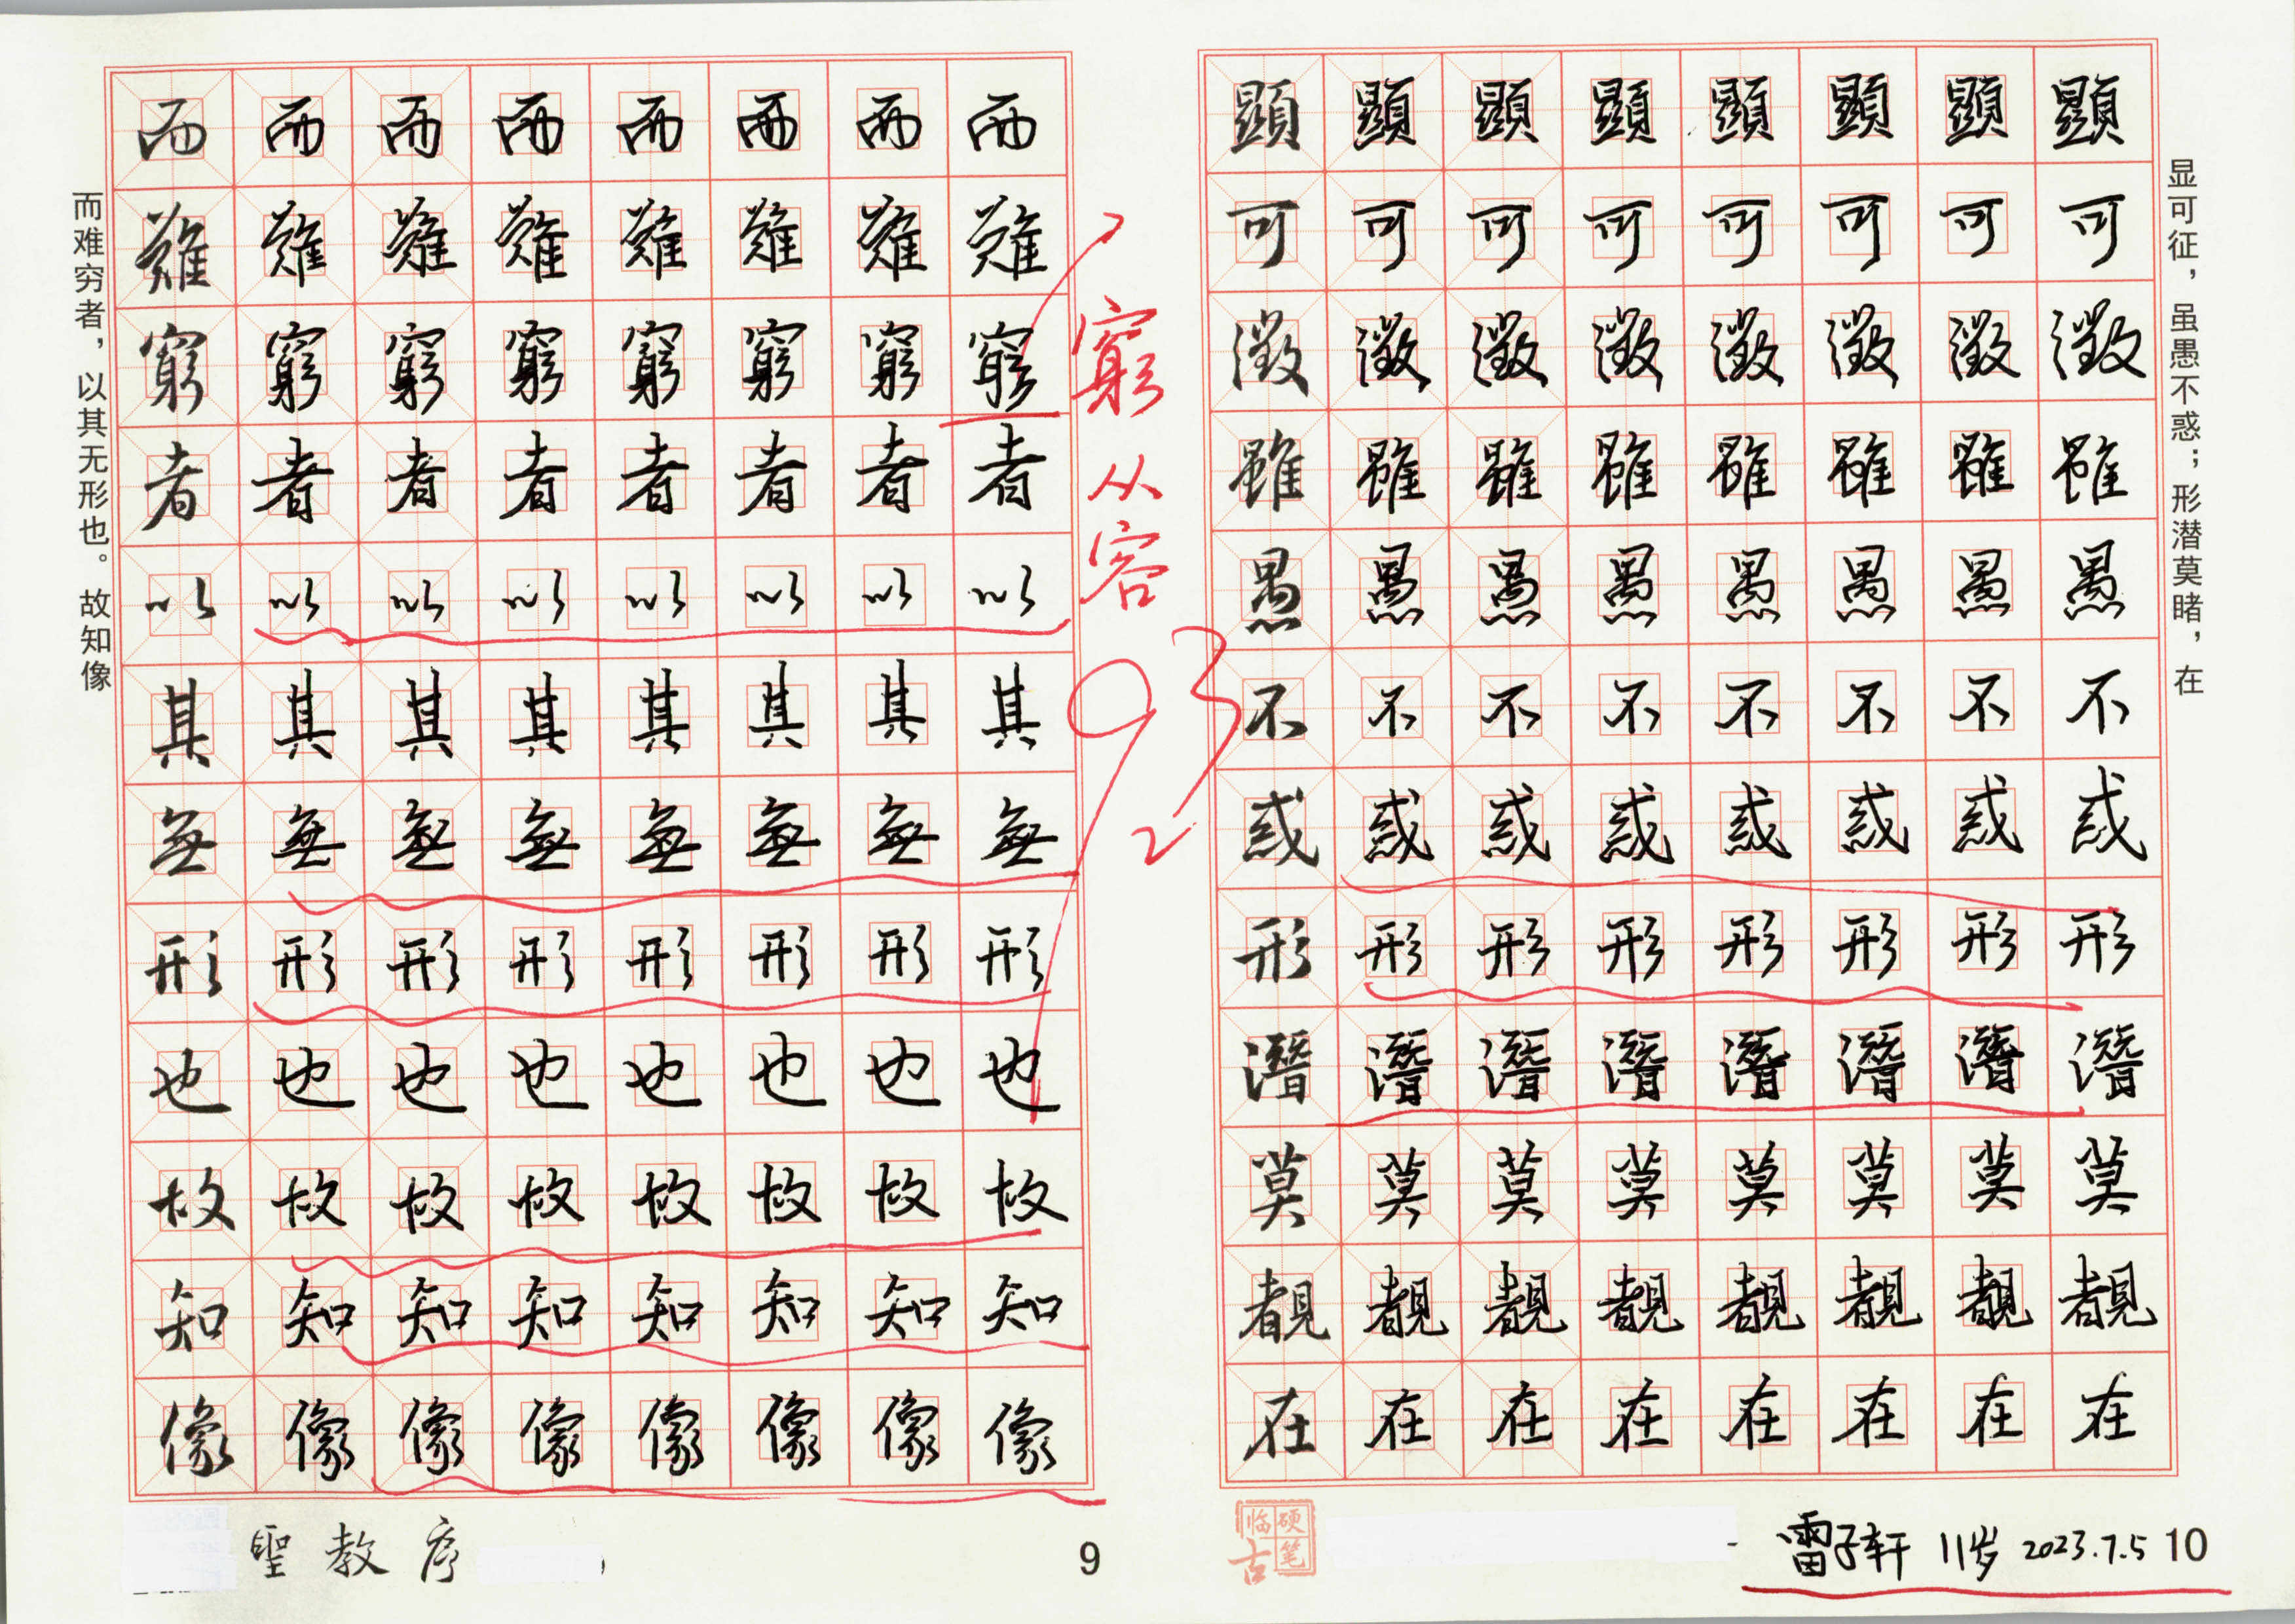 而难穷者，以其无形也。故知像
而而而而而而而而
難難難難難難難難
窮窮窮窮窮窮窮窮
者者者者者者者者
以以以以以以以以
其其其其其其其其
無無無無無無無無
形形形形形形形形
也也也也也也也也
故故故故故故故故
知知知知知知知知
像像像像像像像像
聖教序
9
窮
从容
93
顯顯顯顯顯顯顯顯
可可可可可可可可
徵徵徵徵徵徵徵徵
雖雖雖雖雖雖雖雖
愚愚愚愚愚愚愚愚
不不不不不不不不
惑惑惑惑惑惑惑惑
形形形形形形形形
潛潛潛潛潛潛潛潛
莫莫莫莫莫莫莫莫
覩覩覩覩覩覩覩覩
在在在在在在在在
显可征，虽愚不惑；形潜莫睹，在
硬笔临古
雷子轩 11岁 2023.7.5 10